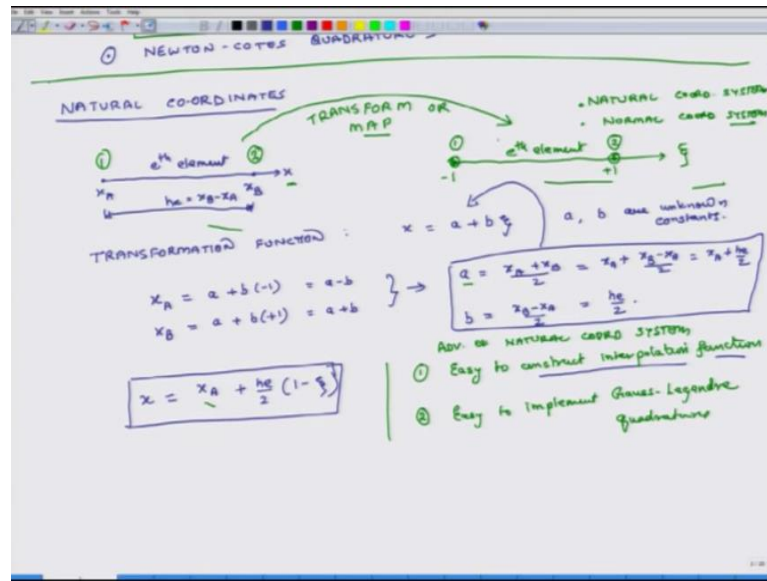 ⊙ NEWTON-COTES QUADRATURE
NATURAL CO-ORDINATES
TRANSFORM OR
MAP
• NATURAL COORD SYSTEM
• NORMAL COORD SYSTEM
① eth element ② x
xA xB
he = xB-xA
① eth element ② ξ
-1 +1
TRANSFORMATION FUNCTION : x = a + bξ a, b are unknown
constants.
xA = a + b(-1) = a-b
xB = a + b(+1) = a+b
} →
a = (xA + xB)/2 = xA + (xB - xA)/2 = xA + he/2
b = (xB - xA)/2 = he/2.
x = xA + he/2 (1-ξ)
ADV. OF NATURAL COORD SYSTEM
① Easy to construct interpolation function
② Easy to implement Gauss-Legendre
quadrature